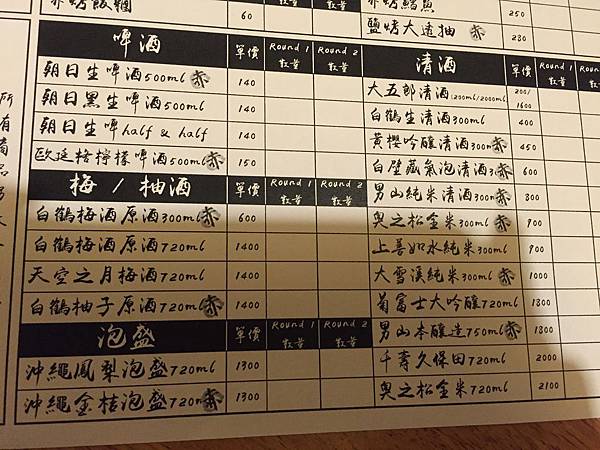 60
250
鹽烤大透抽 赤 280
啤酒 單價 Round 1 數量 Round 2 數量
朝日生啤酒500ml 赤 140
朝日黑生啤酒500ml 140
朝日生啤half & half 140
歐廷格檸檬啤酒500ml 赤 150
梅/柚酒 單價 Round 1 數量 Round 2 數量
白鶴梅酒原酒300ml 赤 600
白鶴梅酒原酒720ml 1400
天空之月梅酒720ml 1400
白鶴柚子原酒720ml 赤 1400
泡盛 單價 Round 1 數量 Round 2 數量
沖繩鳳梨泡盛720ml 1300
沖繩金桔泡盛720ml 赤 1300
清酒 單價 Round 1 數量
大五郎清酒(200ml/2000ml) 200/1600
白鶴生清酒300ml 400
黃櫻吟釀清酒300ml 赤 450
白壁藏氣泡清酒 赤 600
男山純米清酒300ml 赤 800
奧之松金米300ml 赤 900
上善如水純米300ml 900
大雪溪純米300ml 赤 1000
菊富士大吟釀720ml 1800
男山本釀造750ml 赤 1800
千壽久保田720ml 2000
奧之松金米720ml 2100